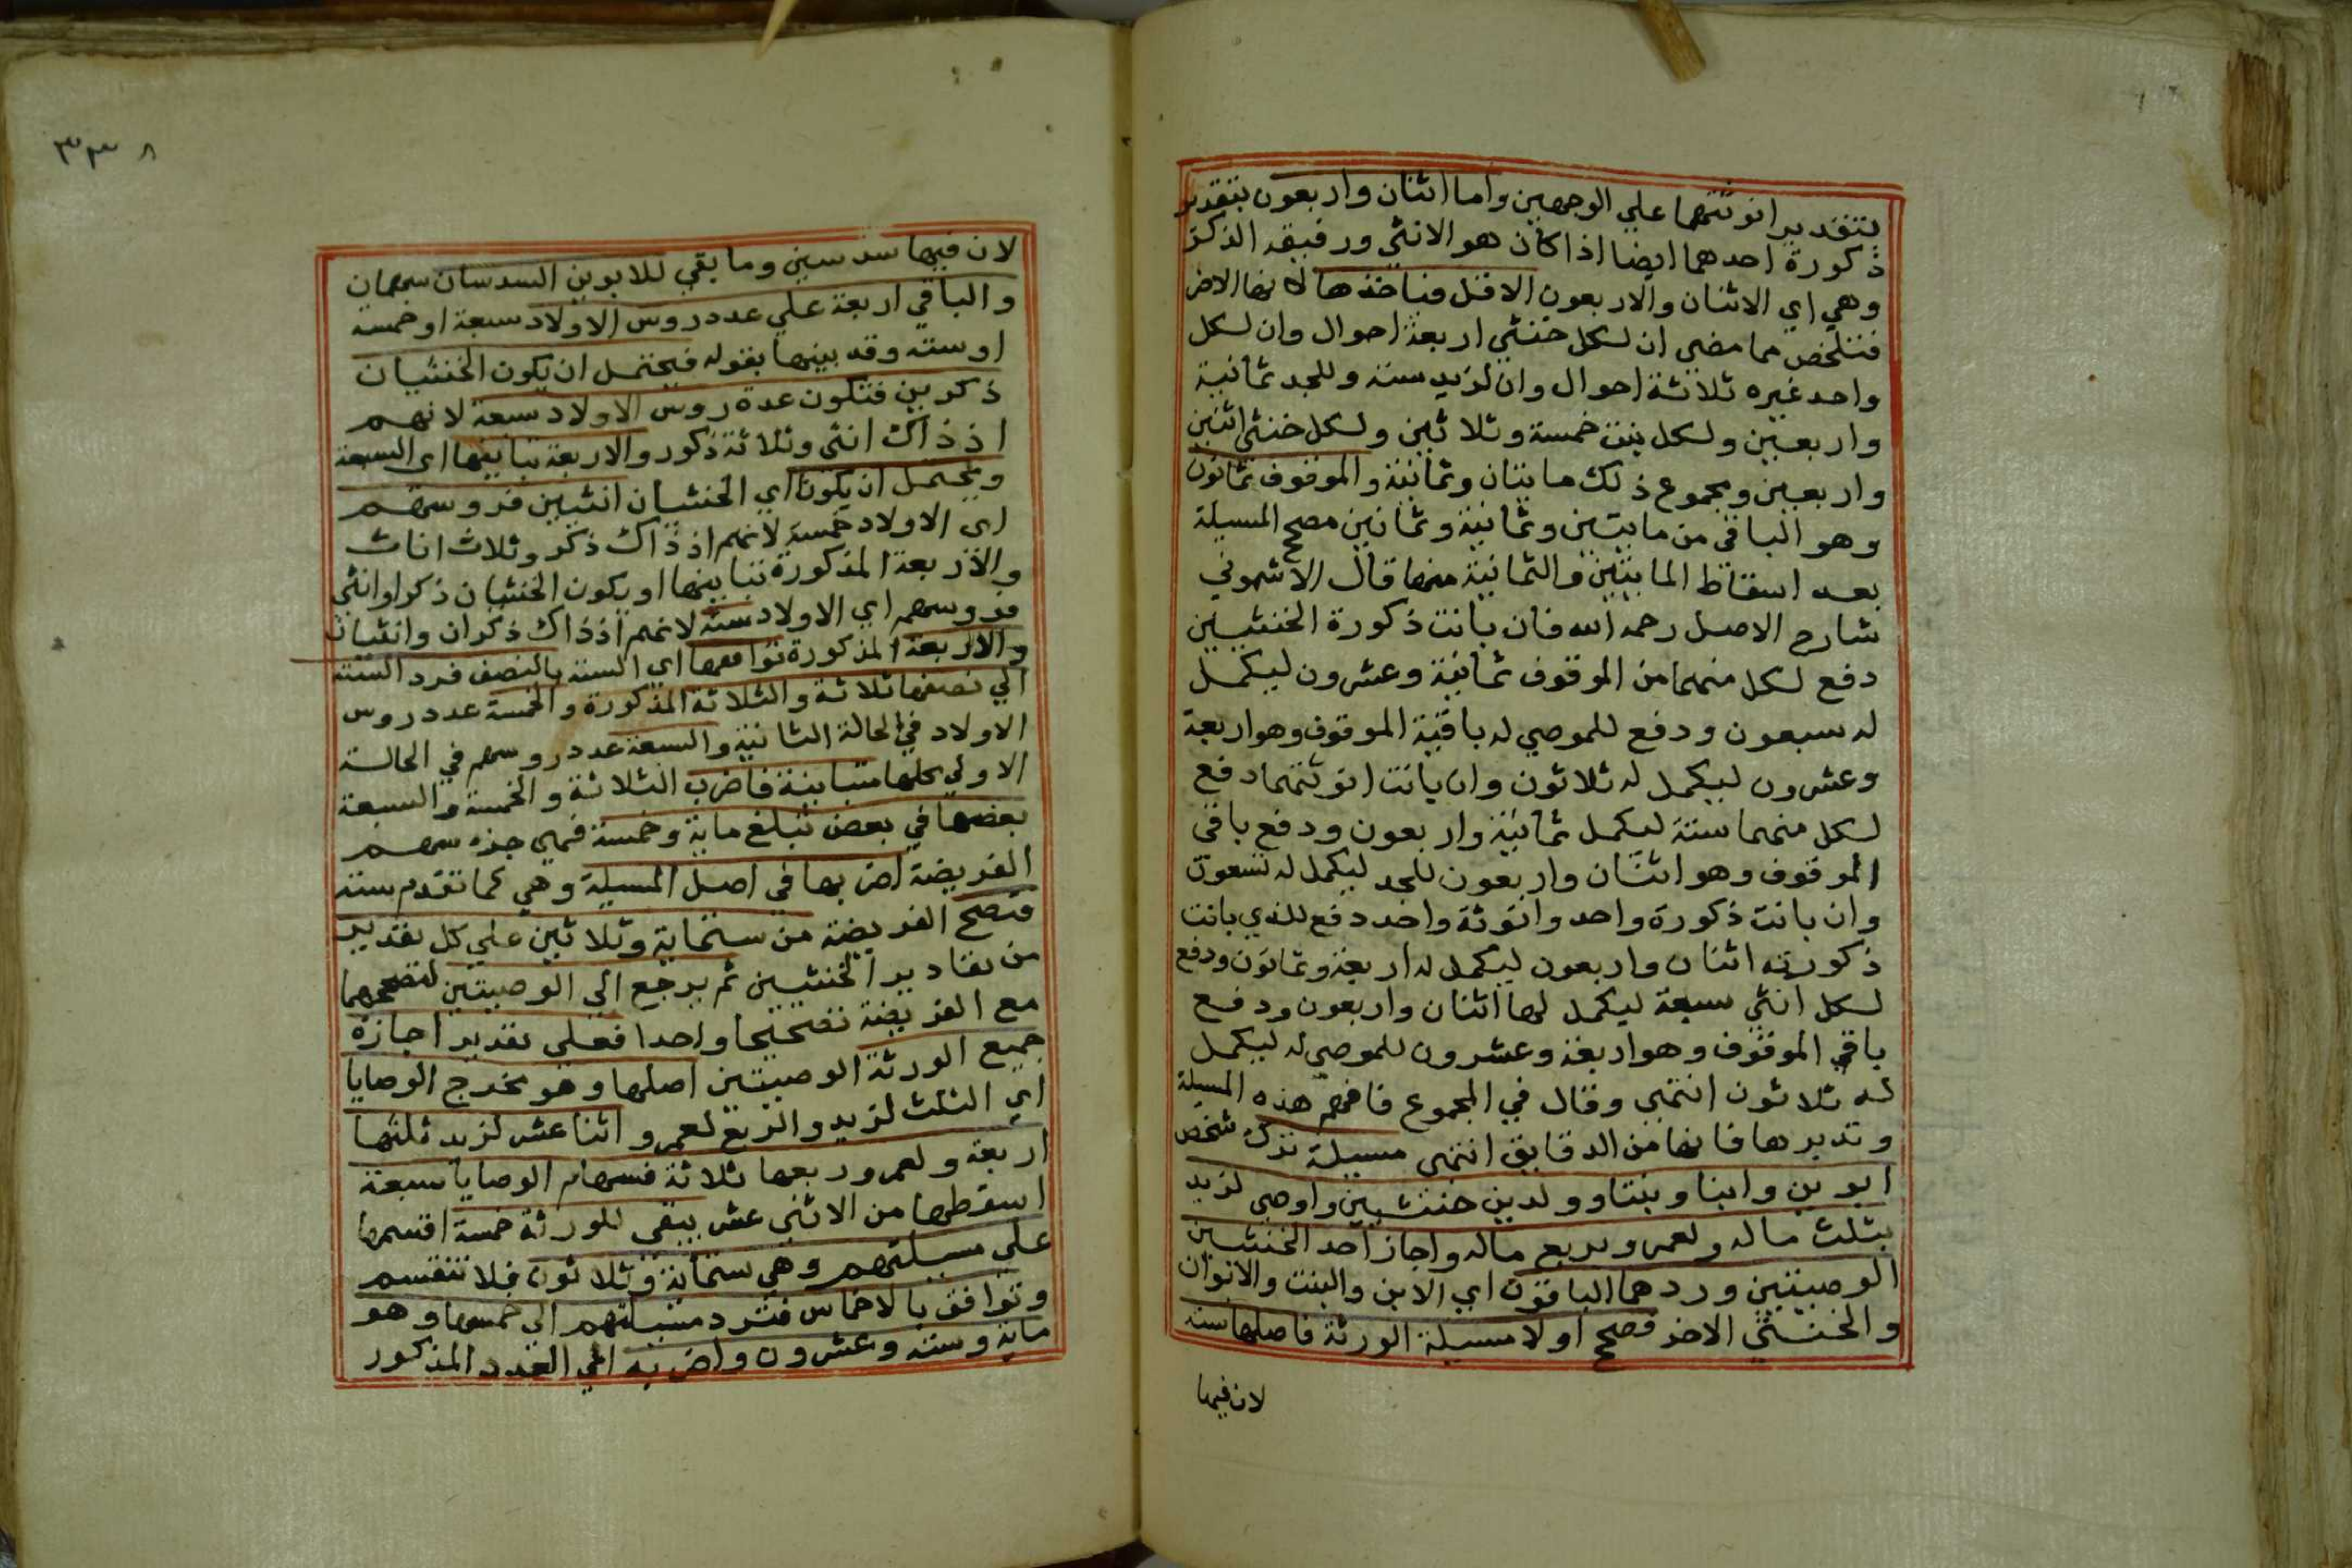 بتقدير انوثتهما علي الوجهين واما اثنان واربعون بتقدير
ذكورة احدهما ايضا اذا كان هو الانثي ورفيقه الذكر
وهي اي الاثنان والاربعون الاقل فيأخذها لانها الاضر
فتلخص مما مضي ان لكل خنثي اربعة احوال وان لكل
واحد غيره ثلاثة احوال وان لزيد ستة وللجد ثمانية
واربعين ولكل بنت خمسة وثلاثين ولكل خنثي اثنين
واربعين ومجموع ذلك مايتان وثمانية والموقوف ثمانون
وهو الباقي من مايتين وثمانية وثمانين مصح المسيلة
بعد اسقاط المايتين والثمانية منها قال الاشموني
شارح الاصل رحمه الله فان بانت ذكورة الخنثيين
دفع لكل منهما من الموقوف ثمانية وعشرون ليكمل
له سبعون ودفع للموصي له باقية الموقوف وهو اربعة
وعشرون ليكمل له ثلاثون وان بانت انوثتهما دفع
لكل منهما ستة ليكمل ثمانية واربعون ودفع باقي
الموقوف وهو اثنان واربعون للجد ليكمل له تسعون
وان بانت ذكورة واحد وانوثة واحد دفع للذي بانت
ذكورته اثنان واربعون ليكمل له اربعة وثمانون ودفع
لكل انثي سبعة ليكمل لها اثنان واربعون ودفع
باقي الموقوف وهو اربعة وعشرون للموصي له ليكمل
له ثلاثون انتهي وقال في المجموع فافهم هذه المسيلة
وتدبرها فانها من الدقايق انتهي مسيلة ترك شخص
ابوين وابنا وبنتا وولدين خنثيين واوصي لزيد
بثلث ماله ولعمرو بربع ماله واجاز احد الخنثيين
الوصيتين وردهما الباقون اي الابن والبنت والابوان
والخنثي الاخر فصحح اولا مسيلة الورثة فاصلها ستة
لان فيها
٣٣٨
لان فيها سدسين وما بقي للابوين السدسان سهمان
والباقي اربعة علي عدد روس الاولاد سبعة او خمسة
او ستة وقد بينها بقوله فيحتمل ان يكون الخنثيان
ذكرين فتكون عدة روس الاولاد سبعة لانهم
اذ ذاك انثي وثلاثة ذكور والاربعة تباينها اي السبعة
ويحتمل ان يكونا اي الخنثيان انثيين فروسهم
اي الاولاد خمسة لانهم اذ ذاك ذكر وثلاث اناث
والاربعة المذكورة تباينها او يكون الخنثيان ذكرا وانثي
فروسهم اي الاولاد ستة لانهم اذ ذاك ذكران وانثيان
والاربعة المذكورة توافقها اي الستة بالنصف فرد الستة
الي نصفها ثلاثة والثلاثة المذكورة والخمسة عدد روس
الاولاد في الحالة الثانية والسبعة عدد روسهم في الحالة
الاولي كلها متباينة فاضرب الثلاثة والخمسة والسبعة
بعضها في بعض تبلغ ماية وخمسة فهي جزء سهم
الفريضة اضربها في اصل المسيلة وهي كما تقدم ستة
فتصح الفريضة من ستماية وثلاثين علي كل تقدير
من تقادير الخنثيين ثم يرجع الي الوصيتين لتصححهما
مع الفريضة تصحيحا واحدا فعلي تقدير اجازة
جميع الورثة الوصيتين اصلها وهو مخرج الوصايا
اي الثلث لزيد والربع لعمرو اثنا عشر لزيد ثلثها
اربعة ولعمرو ربعها ثلاثة فسهام الوصايا سبعة
اسقطها من الاثني عشر يبقي للورثة خمسة اقسمها
علي مسيلتهم وهي ستماية وثلاثون فلا تنقسم
وتوافق بالاخماس فترد مسيلتهم الي خمسها وهو
ماية وستة وعشرون واضربه اي العدد المذكور